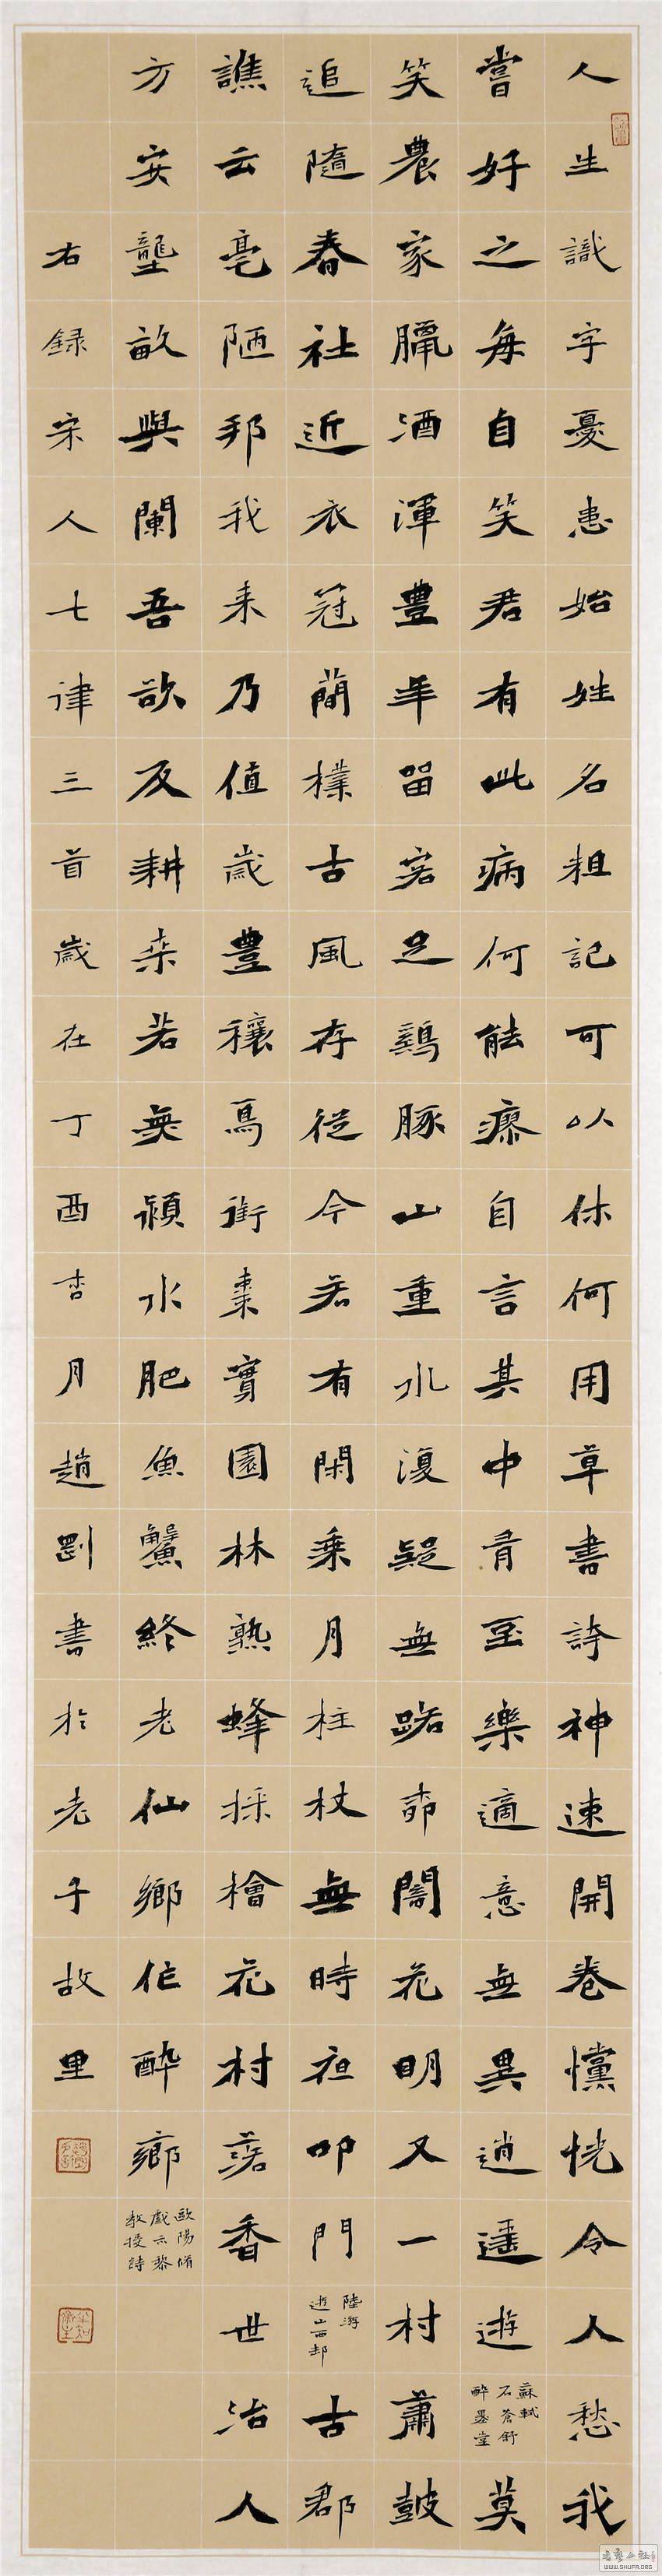 人生識字憂患始姓名粗記可以休何用草書誇神速開卷戃恍令人愁我
嘗好之每自笑君有此病何能瘳自言其中有至樂適意無異逍遙遊
蘇軾
石蒼舒
醉墨堂
莫
笑農家臘酒渾豐年留客足雞豚山重水復疑無路柳闇花明又一村蕭鼓
追隨春社近衣冠簡樸古風存從今若有閑乘月柱杖無時夜叩門
陸游
遊山西邨
古郡
譙云亳陋邦我来乃值歲豐穰烏銜棗實園林熟蜂採檜花村落香世治人
方安壟畝與闌吾欲反耕桒若無潁水肥魚蟹終老仙鄉作醉鄉
歐陽脩
戲示黎
教授詩
右録宋人七律三首歲在丁酉杏月趙剛書於老子故里
WWW.SHUFA.ORG